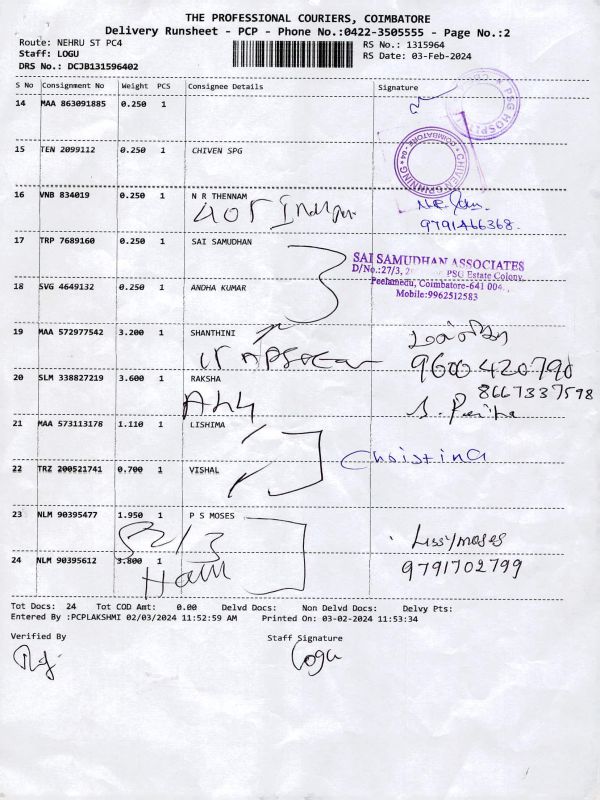 THE PROFESSIONAL COURIERS, COIMBATORE
Delivery Runsheet - PCP - Phone No.:0422-3505555 - Page No.:2
Route: NEHRU ST PC4
RS No.: 1315964
Staff: LOGU
RS Date: 03-Feb-2024
DRS No.: DCJB131596402
S No Consignment No Weight PCS Consignee Details Signature
14 MAA 863091885 0.250 1
PSG HOSPI
15 TEN 2099112 0.250 1 CHIVEN SPG
COIMBATORE - 04 CHIVEN SPINNING
16 VNB 834019 0.250 1 N R THENNAM
405
9791466368.
17 TRP 7689160 0.250 1 SAI SAMUDHAN
SAI SAMUDHAN ASSOCIATES
D/No.:27/3, PSG Estate Colony,
Peelamedu, Coimbatore-641 004.
Mobile:9962512583
18 SVG 4649132 0.250 1 ANDHA KUMAR
19 MAA 572977542 3.200 1 SHANTHINI
9600420790
20 SLM 338827219 3.600 1 RAKSHA
8667337598
21 MAA 573113178 1.110 1 LISHIMA
Christina
22 TRZ 200521741 0.700 1 VISHAL
23 NLM 90395477 1.950 1 P S MOSES
Lissymoses
24 NLM 90395612 3.800 1
9791702799
Tot Docs: 24 Tot COD Amt: 0.00 Delvd Docs: Non Delvd Docs: Delvy Pts:
Entered By :PCPLAKSHMI 02/03/2024 11:52:59 AM Printed On: 03-02-2024 11:53:34
Verified By Staff Signature
Logu